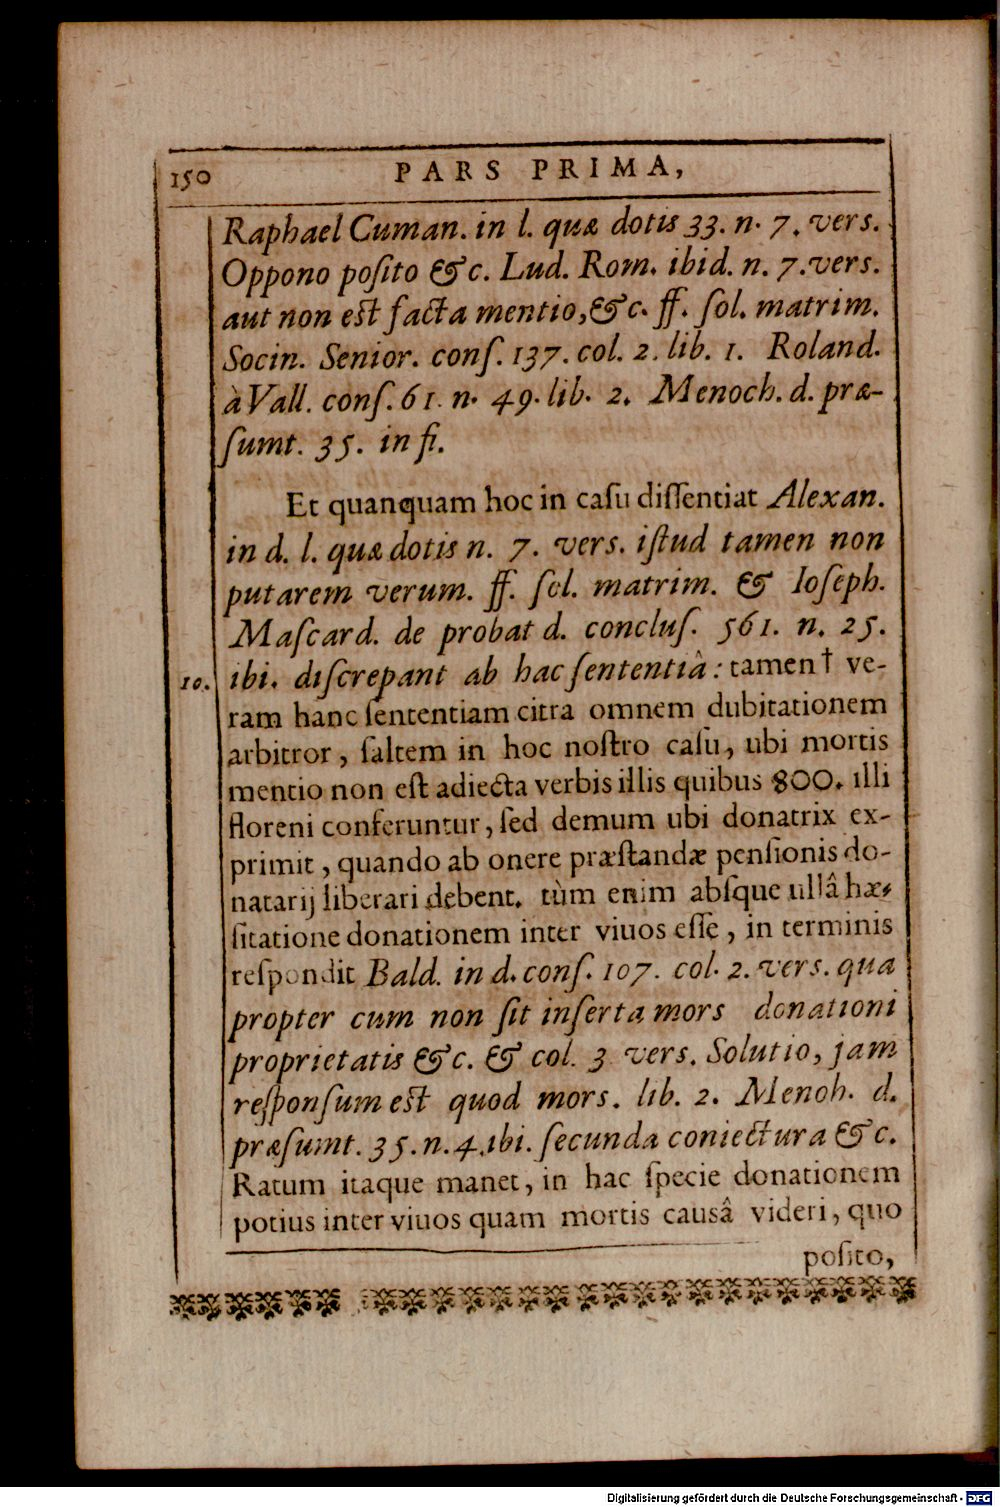 150 PARS PRIMA,
Raphael Cuman. in l. quæ dotis 33. n. 7. vers.
Oppono poſito &c. Lud. Rom. ibid. n. 7. vers.
aut non eſt facta mentio, &c. ff. ſol. matrim.
Socin. Senior. conſ. 137. col. 2. lib. 1. Roland.
à Vall. conſ. 61. n. 49. lib. 2. Menoch. d. præ-
ſumt. 35. in fi.
Et quanquam hoc in caſu diſſentiat Alexan.
in d. l. quæ dotis n. 7. vers. iſtud tamen non
putarem verum. ff. ſol. matrim. & Ioſeph.
Maſcard. de probat d. concluſ. 561. n. 25.
10. ibi. diſcrepant ab hac ſententiâ: tamen † ve-
ram hanc ſententiam citra omnem dubitationem
arbitror, ſaltem in hoc noſtro caſu, ubi mortis
mentio non eſt adiecta verbis illis quibus 800. illi
floreni conferuntur, ſed demum ubi donatrix ex-
primit, quando ab onere præſtandæ penſionis do-
natarij liberari debent. tùm enim abſque ullâ hæ-
ſitatione donationem inter viuos eſſe, in terminis
reſpondit Bald. in d. conſ. 107. col. 2. vers. qua
propter cum non ſit inſerta mors donationi
proprietatis &c. & col. 3 vers. Solutio, jam
reſponſum eſt quod mors. lib. 2. Menoh. d.
præſumt. 35. n. 4. ibi. ſecunda coniectura &c.
Ratum itaque manet, in hac ſpecie donationem
potius inter viuos quam mortis causâ videri, quo
poſito,
Digitalisierung gefördert durch die Deutsche Forschungsgemeinschaft - DFG